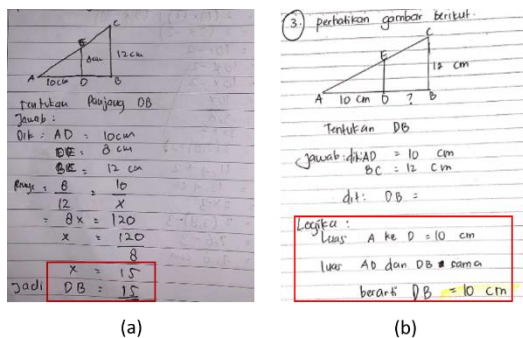 C
E
8cm
12 cm
A 10cm D B
Tentukan Panjang DB
Jawab :
Dik : AD = 10cm
DE = 8 cm
BC = 12 cm
8 = 10
12 x
= 8x = 120
x = 120
8
x = 15
Jadi DB = 15
(a)
3. perhatikan gambar berikut.
C
E
12 cm
A 10 cm D ? B
Tentukan DB
Jawab : dik : AD = 10 cm
BC = 12 cm
dit : DB =
Logika :
Luas A ke D = 10 cm
luas AD dan DB sama
berarti DB = 10 cm
(b)